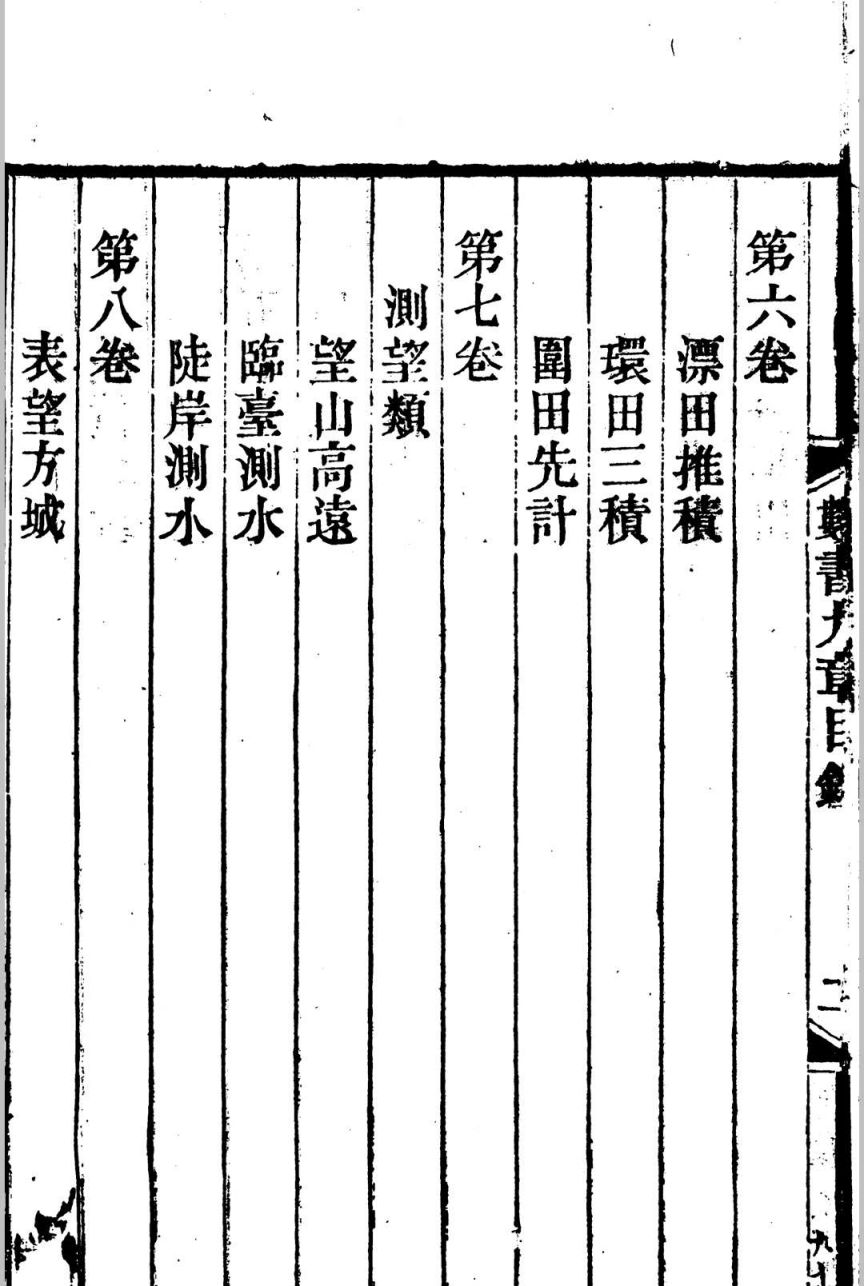 數書九章目錄
二
第六卷
漂田推積
環田三積
圍田先計
第七卷
測望類
望山高遠
臨臺測水
陡岸測水
第八卷
表望方城